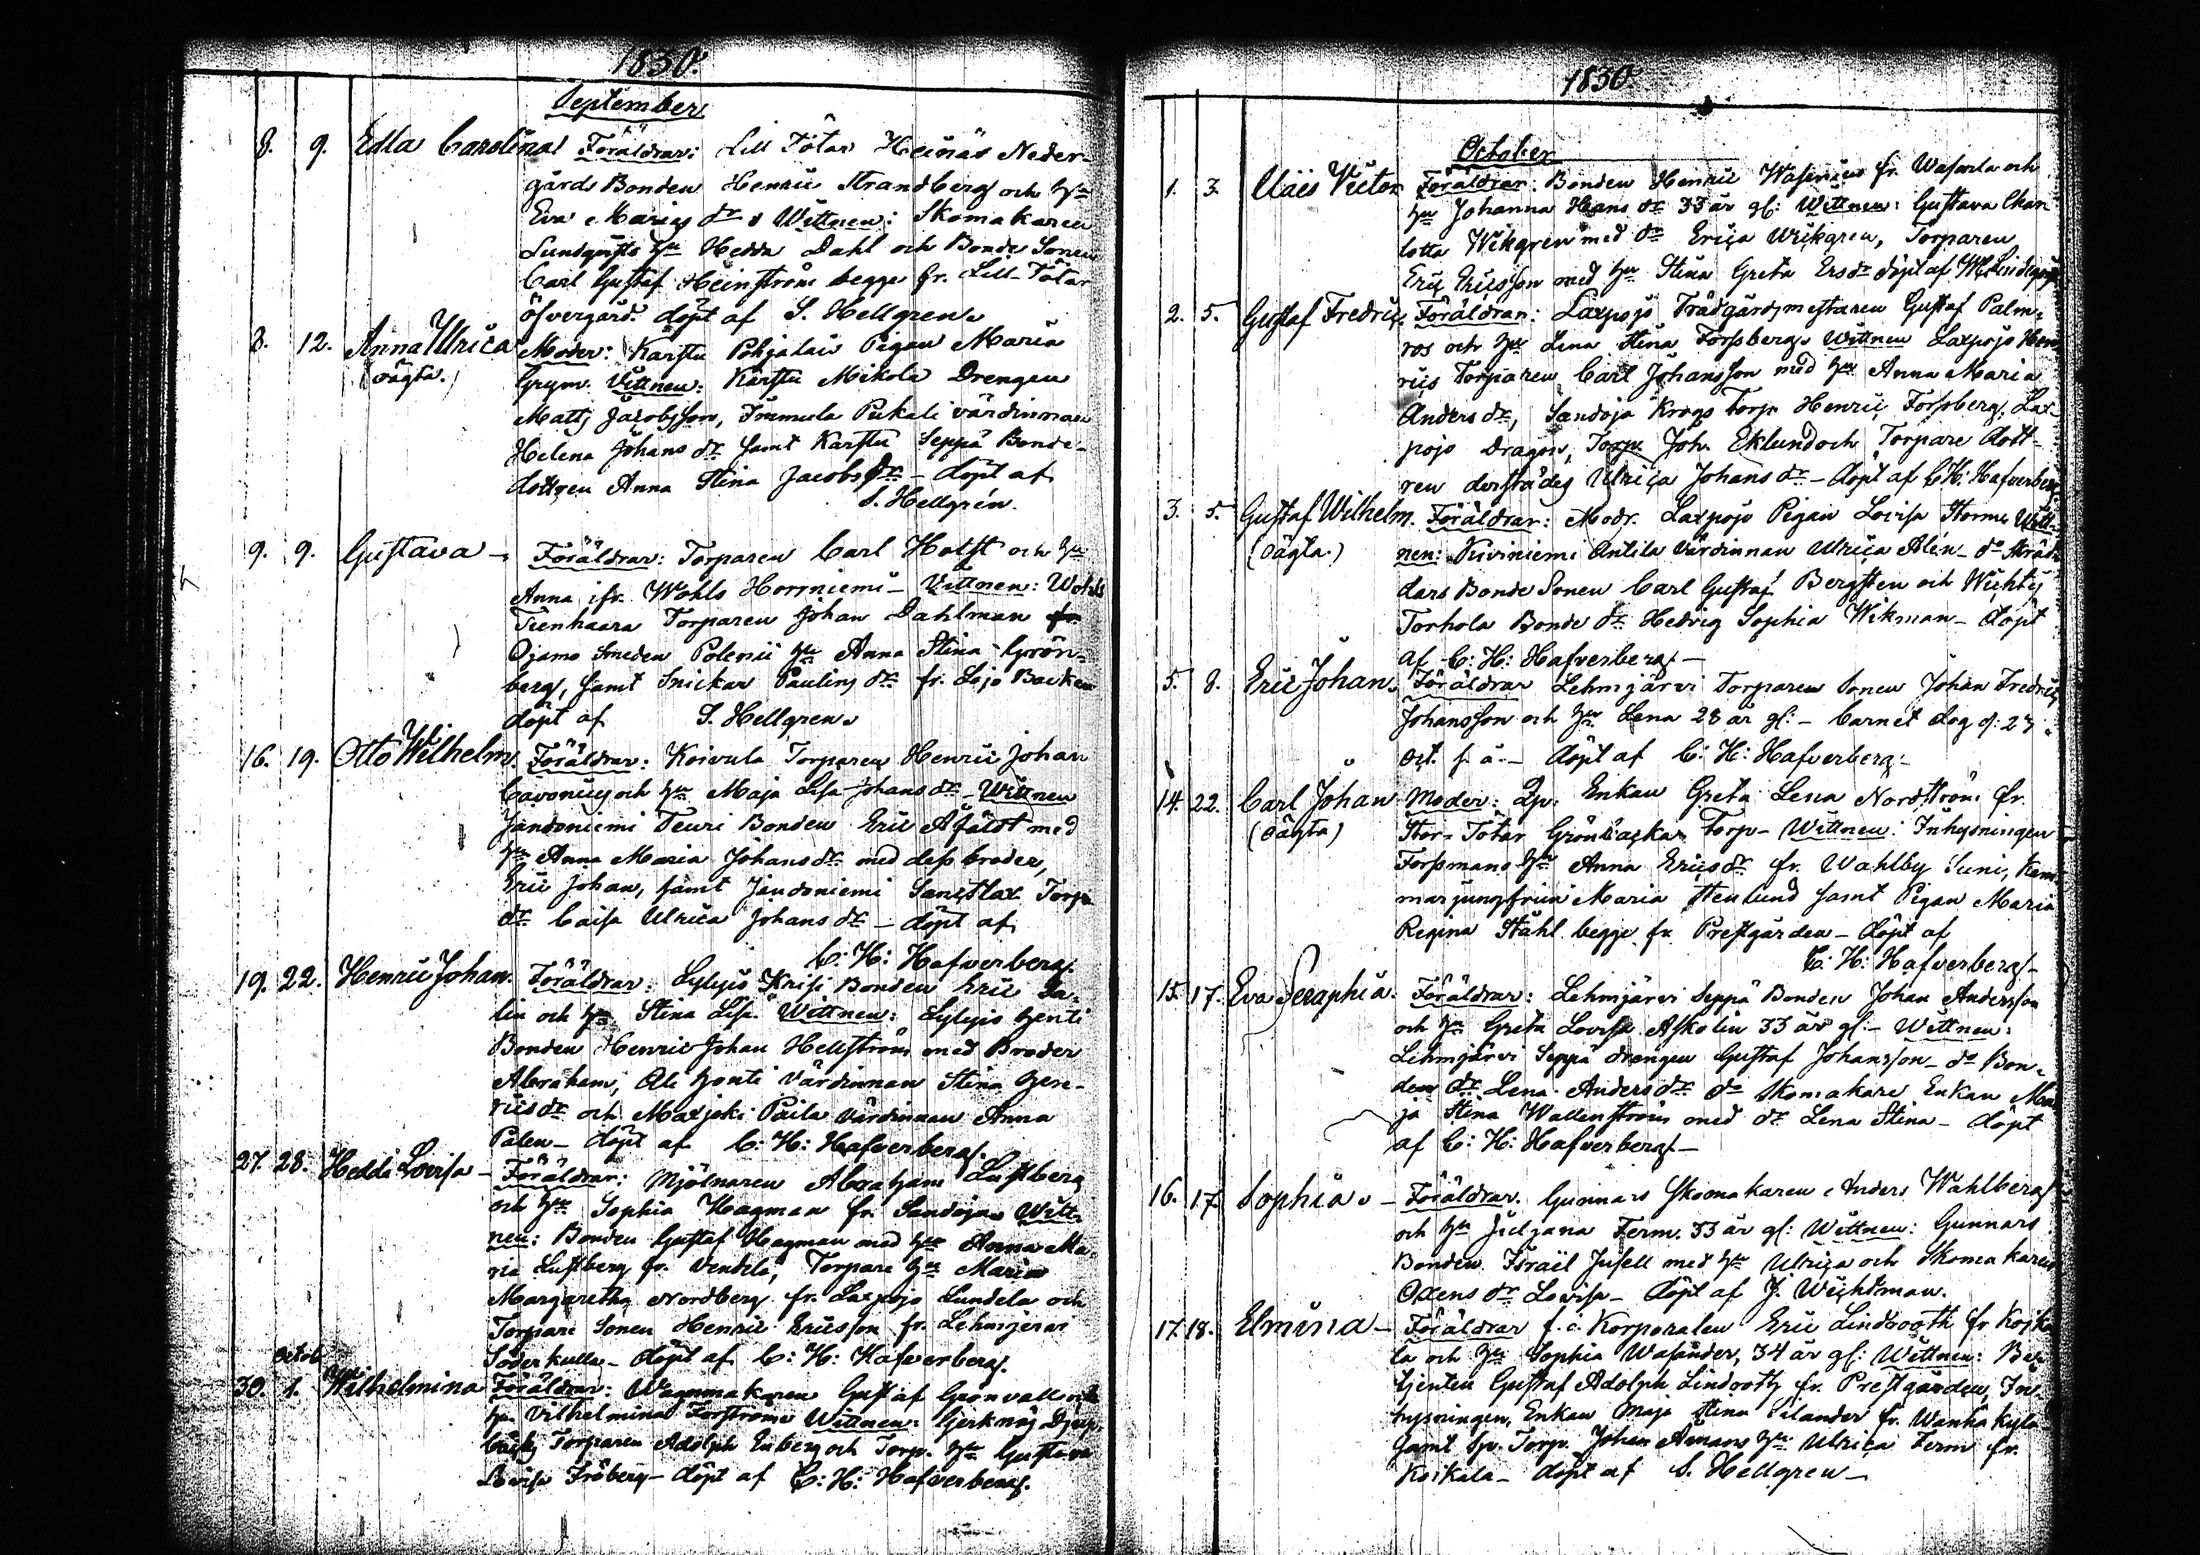 1830.
September
8. 9. Edla Carolina Föräldrar: Lill Tötar Heinäs Neder-
gårds Bonden Henric Strandberg och hu
Eva Marias dr Wittnen: Skomakaren
Lundqvists hu Hedda Dahl och Bonde Sonen
Carl Gustaf Heinström begge fr. Lill Tötar
öfvergård. döpt af S. Hellgren.
8. 12. Anna Ulrica Moder: Karstu Pohjalais Pigan Maria
(oägta.) Grym. Vittnen: Karstu Mikola Drengen
Matts Jacobsson, Immula Pukali värdinnan
Helena Johans dr samt Karstu Seppä Bonde-
dottren Anna Stina Jacobs dr - döpt af
S. Hellgrén.
9. 9. Gustava - Föräldrar: Torparen Carl Holst och hu
Anna ifr. Wohls Horrniemi - Vittnen: Wohls
Tienhaara Torparen Johan Dahlman
Ojamo Smeden Polenii hu Anna Stina Grön-
berg, samt Snickar Paulins dr fr. Lojo Backen
döpt af S. Hellgren.
16. 19. Otto Wilhelm. Föräldrar: Koivula Torparen Henric Johan
Cavonius och hu Maja Lisa Johans dr - Wittnen
Jandoniemi Teuri Bonden Eric med
hu Anna Maria Johans dr med dess broder,
Eric Johan, samt Jandoniemi Torp
dr Caisa Ulrica Johans dr - döpt af
C: H: Hafverberg.
19. 22. Henric Johan. Föräldrar: Lylyis Krisi Bonden Eric Sa-
lin och hu Stina Lisa. Wittnen: Lylyis honti
Bonden Henric Johan Hellström med Broder
Abraham, Ali honti Värdinnan Stina hen-
rics dr och Maxjoki Paila värdinnan Anna
Palen - döpt af C: H: Hafverberg.
27. 28. Hedda Lovisa - Föräldrar: Mjölnaren Abraham Lustberg
och hu Sophia Hagman fr. Sandoja. Witt-
nen: Bonden Gustaf Hagman med hu Anna Ma-
ria Lustberg fr. Vendelä, Torpare hu Maria
Margaretha Nordberg fr. Laxpojo Lundela och
Torpare Sonen Henric Ericsson fr. Lehmjervi
Söderkulla - döpt af C: H: Hafverberg.
Octob.
30. 1. Wilhelmina Föräldrar: Wagnmakaren Gustaf Grönvall och
hu Vilhelmina Forström Wittnen: Gerknäs Djup-
Torparen Adolph Enberg och Torp. hu Gustava
Lovisa Fröberg - döpt af C: H: Hafverberg.
1830.
October
1. 3. Claës Victor Föräldrar: Bonden Henric Wasenius fr. Wasarla och
hu Johanna Hans dr 33 år gl: Wittnen: Gustava Char-
lotta Wikgren med dr Erica Wikgren, Torparen
Eric Ericsson med hu Stina Greta Ers dr döpt af
2. 5. Gustaf Fredric. Föräldrar: Laxpojo Trädgårdsmestaren Gustaf Palm-
ros och hu Lena Stina Forssberg. Wittnen Laxpojo Hen-
rics Torparen Carl Johansson med hu Anna Maria
Anders dr, Sandoja Krogs Torp. Henric Forssberg, Lax-
pojo Dragon, Torp. Joh. Eklund och Torpare dott-
ren derstädes Ulrica Johans dr - döpt af C: H: Hafverberg
3. 5. Gustaf Wilhelm. Föräldrar: Modr. Laxpojo Pigan Lovisa Storm. Witt-
(oägta.) nen: Kiviniemi Antila Värdinnan Ulrica Alén - do
dars Bonde Sonen Carl Gustaf Bergsten och Wichtis
Torhola Bonde dr Hedvig Sophia Wikman - döpt
af C: H: Hafverberg. -
5. 8. Eric Johan. Föräldrar Lehmjärvi Torparen Sonen Johan Fredric
Johansson och hu Lena 28 år gl: - barnet dog d: 23
Oct. s. å. - döpt af C: H: Hafverberg. -
14. 22. Carl Johan Moder: Enkan Greta Lena Nordström fr.
(oägta) Stor-Tötar Grönbacka Torp - Wittnen: Inhysningen
Forssmans hu Anna Erics dr fr. Wahlby Suni, Kam-
marjungfrun Maria Stenlund samt Pigan Maria
Regina Ståhl begge fr. Prestgården - döpt af
C: H: Hafverberg. -
15. 17. Eva Seraphia. Föräldrar: Lehmjärvi Seppä Bonden Johan Andersson
och hu Greta Lovisa Askolin 33 år gl: - Wittnen:
Lehmjärvi Seppä drengen Gustaf Johansson - do Bon-
den dr Lena Anders dr do Skomakare Enkan Ma-
ja Stina Wallenström med dr Lena Stina - döpt
af C: H: Hafverberg. -
16. 17. Sophia. - Föräldrar. Gunnars Skomakaren Anders Wahlberg
och hu Juliana Ferm. 33 år gl: Wittnen: Gunnars
Bonden Israël Jusell med hu Ulrica och Skomakaren
Oxens dr Lovisa - döpt af J. Wichtman.
17. 18. Elmina - Föräldrar f. d. Korporalen Eric Lindrooth fr Koika-
la och hu Sophia Wasander, 34 år gl: Wittnen: Be-
tjenten Gustaf Adolph Lindrooth fr. Prestgården, In-
hysningen, Enkan Maja Stina Silander fr. Wanhakylä
samt Torp. Johan Amans hu Ulrica Ferm fr.
Koikala - döpt af S. Hellgren -